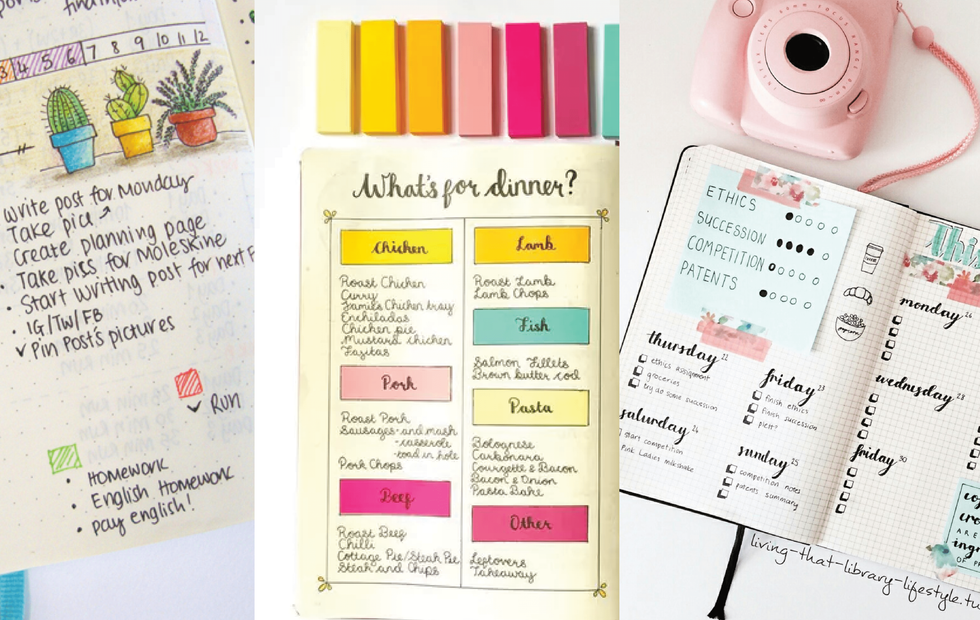 3 4 5 6 7 8 9 10 11 12
Write post for Monday
Take pics
Create planning page
Take pics for Moleskine
Start writing post for next F
IG/TW/FB
Pin Post's pictures
Run
Homework
English Homework
pay english!
What's for dinner?
Chicken
Roast Chicken
Curry
Jamie's Chicken tray
Enchiladas
Chicken pie
Mustard chicken
Fajitas
Pork
Roast Pork
Sausages-and mash
-casserole
-toad in hole
Pork Chops
Beef
Roast Beef
Chilli
Cottage Pie/Steak Pie
Steak and Chips
Lamb
Roast Lamb
Lamb Chops
Fish
Salmon Fillets
Brown butter cod
Pasta
Bolognese
Carbonara
Courgette & Bacon
Bacon & Onion
Pasta Bake
Other
Leftovers
Takeaway
ETHICS
SUCCESSION
COMPETITION
PATENTS
thursday 22
ethics assignment
groceries
try do some succession
friday 23
finish ethics
finish succession
plent
saturday 24
start competition
Pink Ladies milkshake
sunday 25
competition notes
patents summary
This
monday 26
wednesday 28
friday 30
ARE
OF
living-that-library-lifestyle.tu